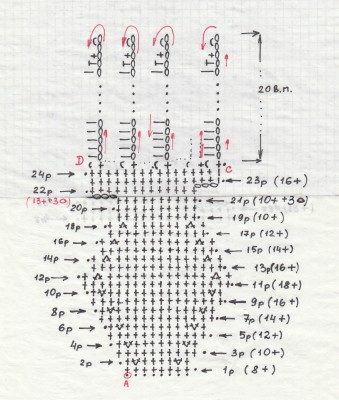 20в.п.
D
C
24р
23р (16+)
22р
(13++3०)
21р (10++3०)
20р
19р (10+)
18р
17р (12+)
16р
15р (14+)
14р
13р (16+)
12р
11р (18+)
10р
9р (16+)
8р
7р (14+)
6р
5р (12+)
4р
3р (10+)
2р
1р (8+)
A